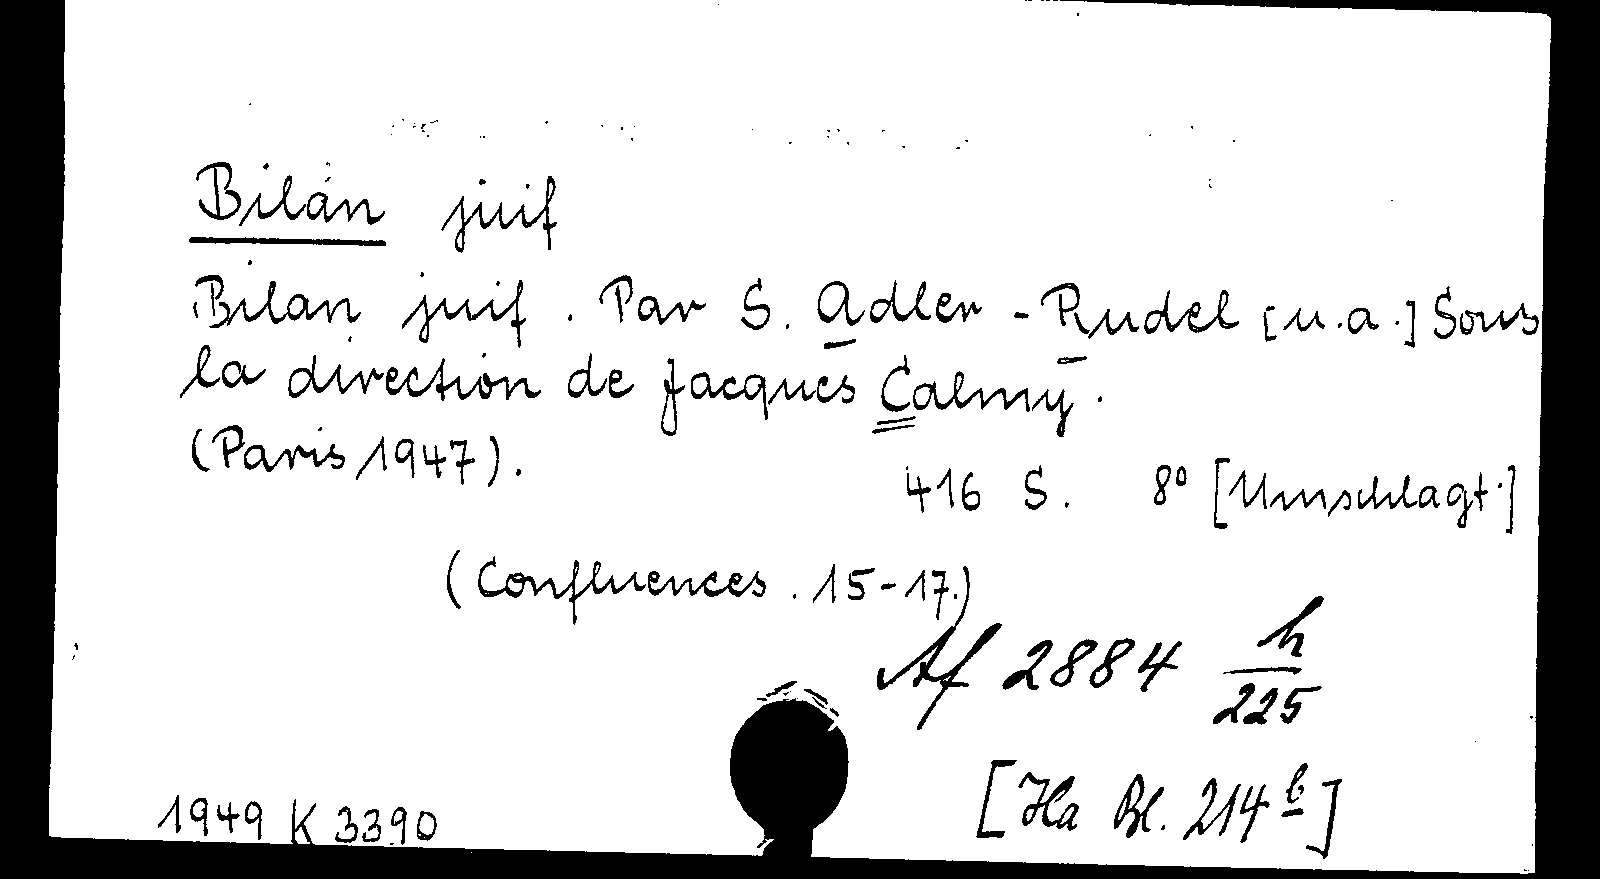 Bilan juif
Bilan juif. Par S. Adler-Rudel [u.a.] Sous
la direction de Jacques Calmy.
(Paris 1947).
416 S. 8° [Umschlagt.]
(Confluences. 15-17.)
Af 2884 h/225
[Ha Bl. 214 b]
1949 K 3390